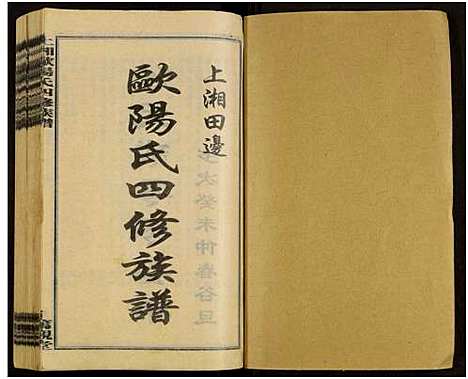 上湘田邊
歐陽氏四修族譜
癸未仲春谷旦
上湘歐陽氏四修族譜